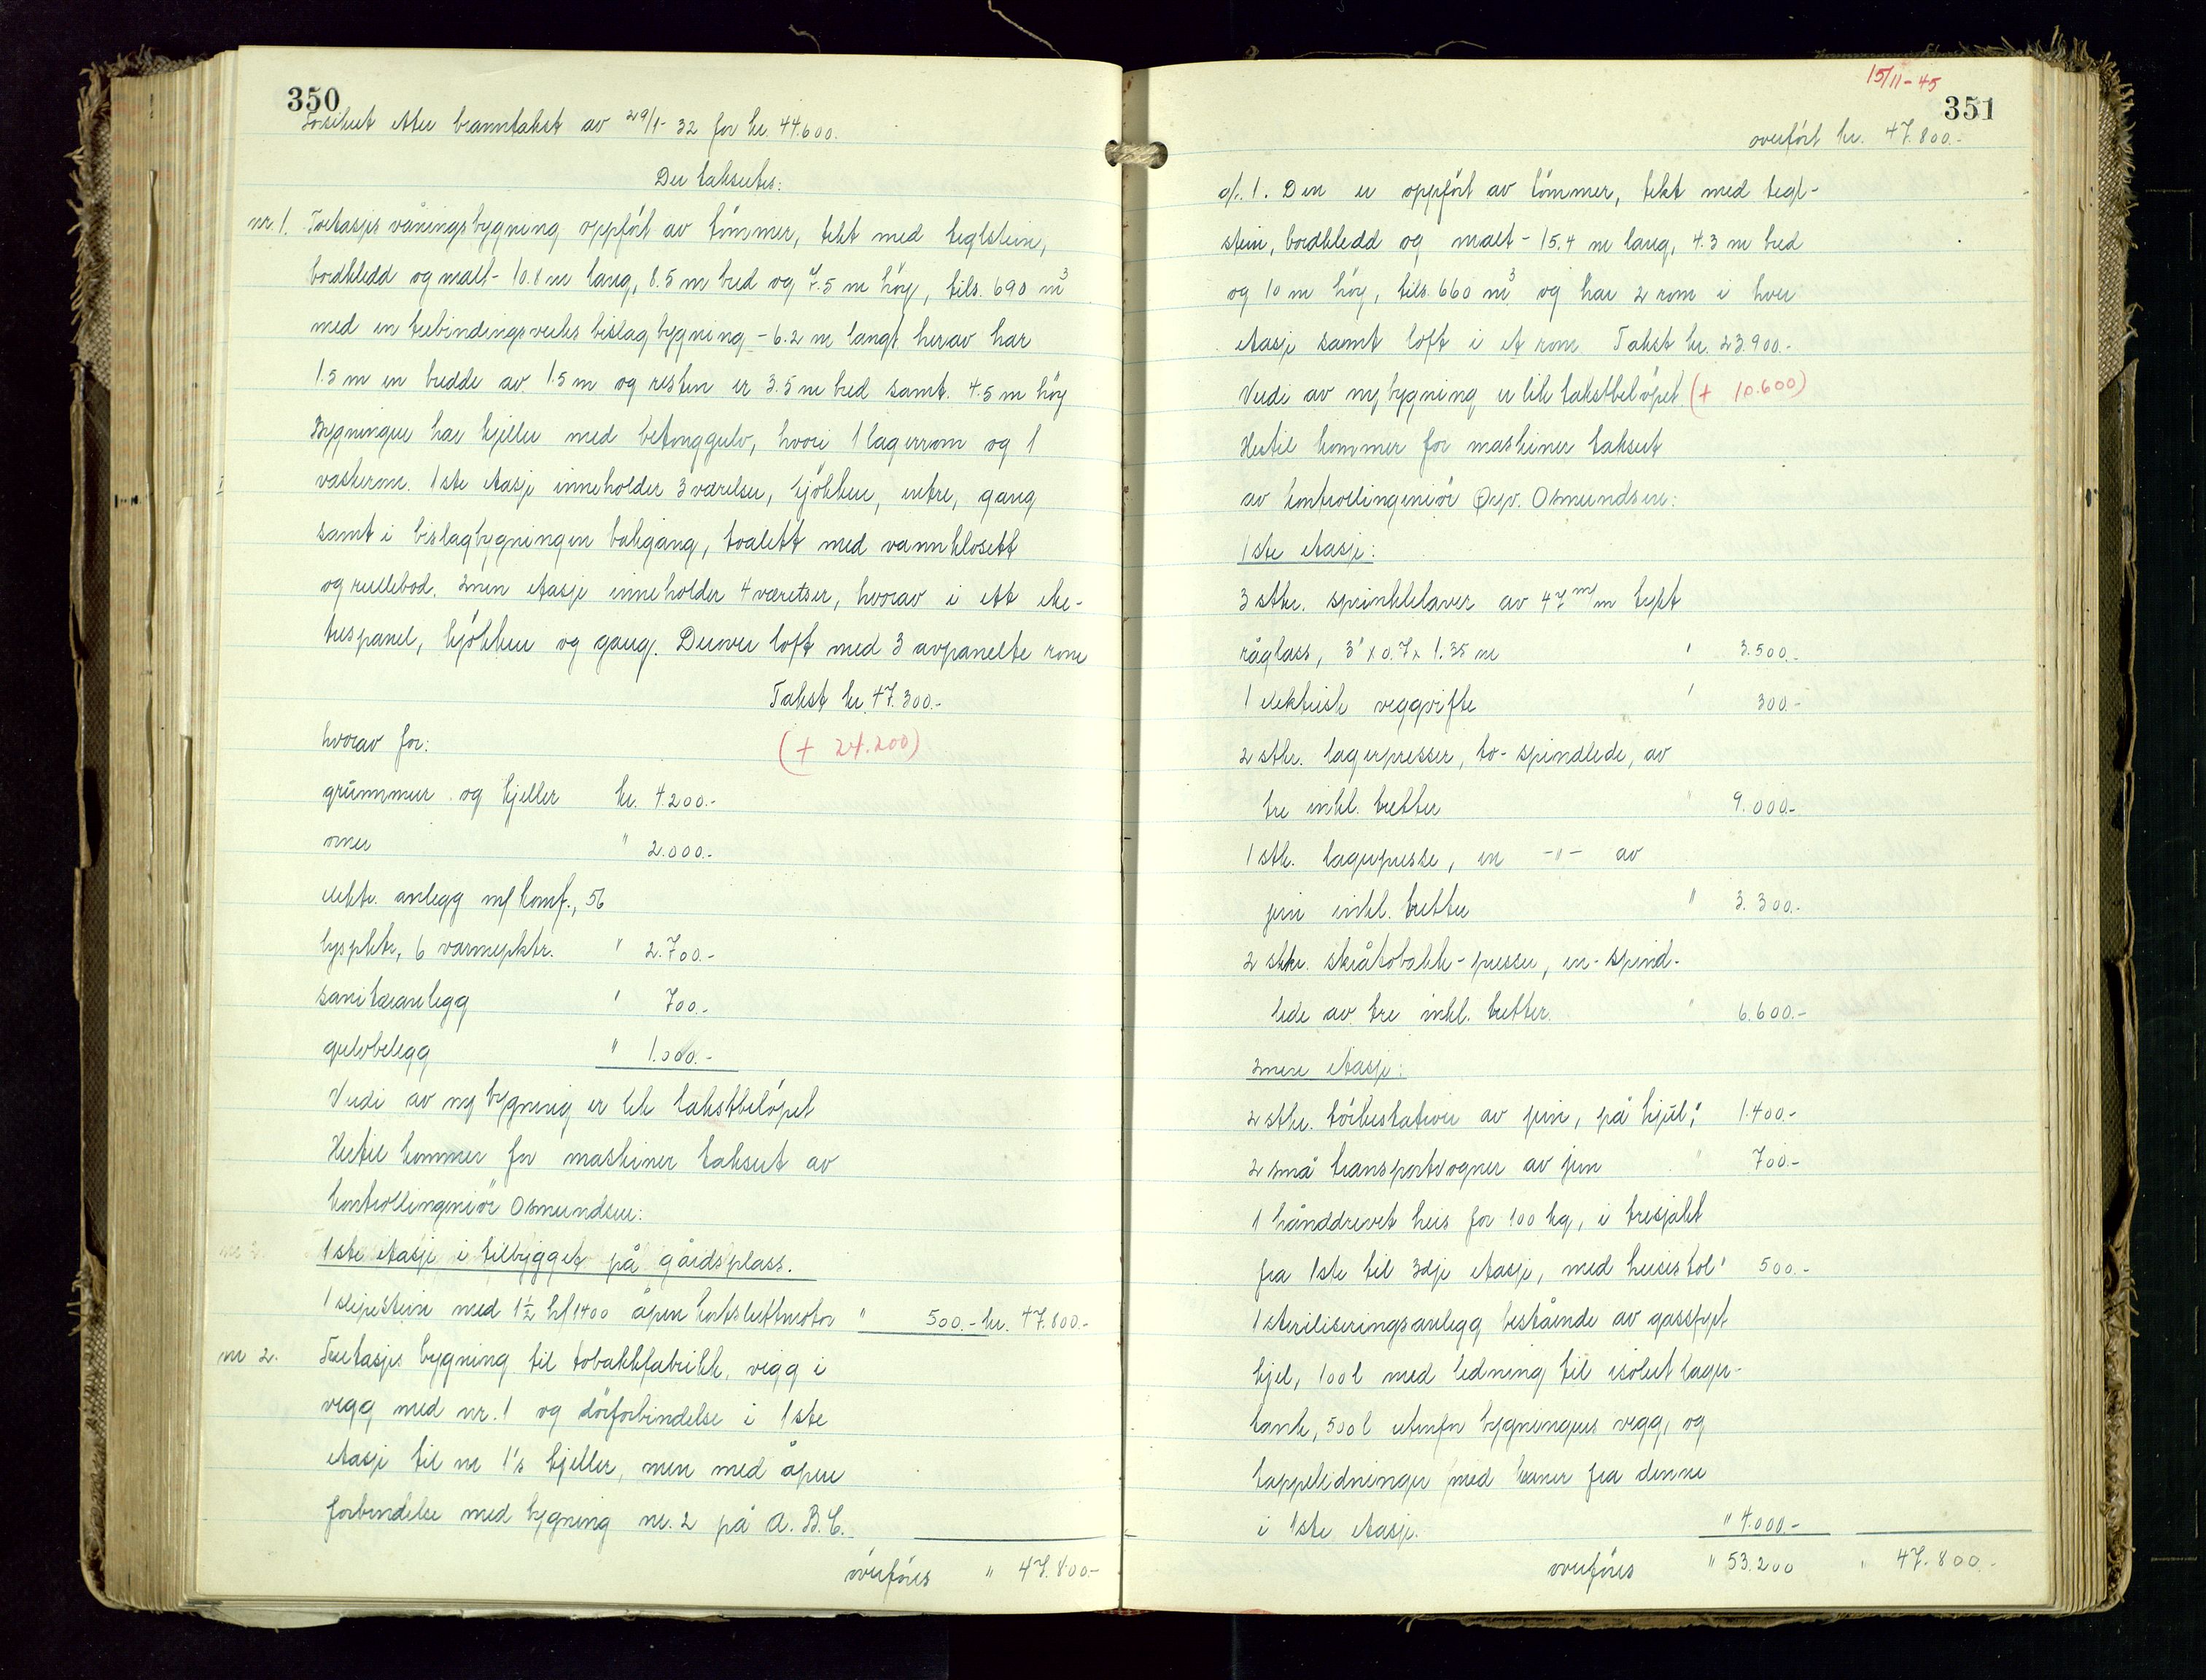 350
Forsikret etter branntakst av 29/1-32 for kr. 44.600.
Der takseres:
nr. 1. Toetasjes våningsbygning oppført av tömmer, tekt med teglstein,
bordkledd og malt - 10.8 m lang, 8.5 m bred og 7.5 m höy, tils. 690 m³
med en trebindingsverks bislagbygning - 6.2 m langt herav har
1.5 m en bredde av 1.5 m og resten er 3.5 m bred samt 4.5 m höy
Bygningen har kjeller med betonggulv, hvori 1 lagerrom og 1
vaskerom. 1ste etasje inneholder 3 værelser, kjökken, entre, gang
samt i bislagbygningen bakgang, toalett med vannklosett
og rullebod. 2nen etasje inneholder 4 værelser, hvorav i ett eke-
trespanel, kjökken og gang. Derover loft med 3 avpanelte rom
Takst kr. 47.300.-
(+ 24.200)
hvorav for:
grunnmur og kjeller kr. 4.200.-
ovner " 2.000.-
elektr. anlegg m/ komf., 56
lyspktr, 6 varmepktr. " 2.700.-
sanitæranlegg " 700.-
gulvbelegg " 1.000.-
Verdi av ny bygning er lik takstbelöpet
Hertil kommer for maskiner taksert av
kontrollingeniör Osmundsen:
1ste etasje i tilbygget på gårdsplass.
1 slipestein med 1½ hk 1400 åpen kortsluttmotor " 500.- kr. 47.800.-
nr 2. Treetasjes bygning til tobakkfabrikk, vegg i
vegg med nr. 1 og dörforbindelse i 1ste
etasje til nr 1's kjeller, men med åpen
forbindelse med bygning nr. 2 på A.B.C.
overföres " 47.800.-
15/11-45
351
overfört kr. 47.800.-
gl. 1. Den er oppfört av tömmer, tekt med tegl-
stein, bordkledd og malt - 15.4 m lang, 4.3 m bred
og 10 m höy, tils. 660 m³ og har 2 rom i hver
etasje samt loft i et rom. Takst kr. 23.900.-
Verdi av ny bygning er lik takstbelöpet (+ 10.600)
Hertil kommer for maskiner taksert
av kontrollingeniör Osmundsen:
1ste etasje:
3 stkr. sprinkelaver av 47 m/m tykt
råglass, 3' x 0.7 x 1.35 m " 3.500.-
1 elektrisk veggvifte " 300.-
2 stkr. lagerpresser, to-spindlede, av
tre inkl. bretter " 9.000.-
1 stk. lagerpresse, en -"- av
jern inkl. bretter " 3.300.-
2 stkr. skråtobakk-presser, en-spind-
lede av tre inkl. bretter. " 6.600.-
2nen etasje:
2 stkr. törkestativer av jern, på hjul, " 1.400.-
2 små transportvogner av jern " 700.-
1 hånddrevet heis for 100 kg, i tresjakt
fra 1ste til 3dje etasje, med heisestol " 500.-
1 steriliseringsanlegg bestående av gassfyrt
kjel, 100 l med ledning til isolert lager-
tank, 500 l utenfor bygningens vegg, og
tappeledninger med kraner fra denne
i 1ste etasje. " 4.000.-
overföres " 53.200 " 47.800.-